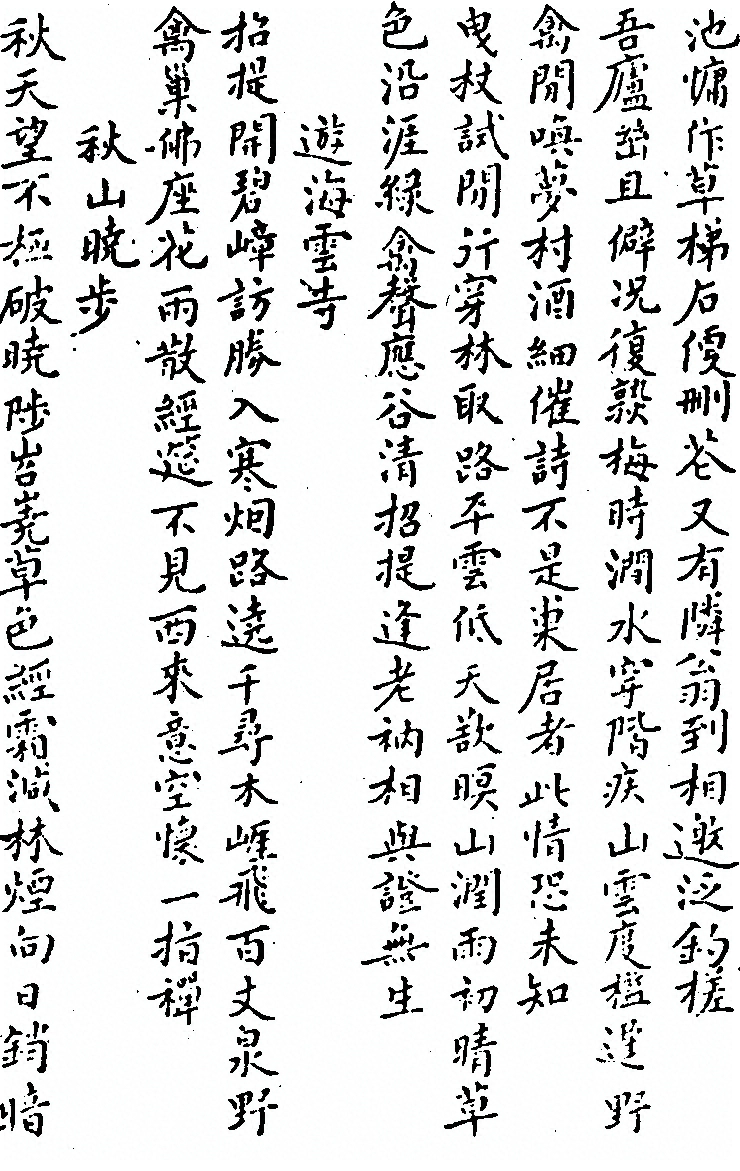 池慵作草梯石便刪花又有隣翁到相邀泛釣槎
吾廬幽且僻况復熟梅時澗水穿階疾山雲度檻遲野
禽閒喚夢村酒細催詩不是巢居者此情恐未知
曳杖試閒行穿林取路平雲低天歛暝山潤雨初晴草
色沿涯綠禽聲應谷清招提逢老衲相與證無生
遊海雲寺
招提開碧嶂訪勝入寒烟路遶千尋木崕飛百丈泉野
禽巢佛座花雨散經筵不見西來意空懷一指禪
秋山曉步
秋天望不極破曉陟岧嶤草色經霜減林煙向日銷暗